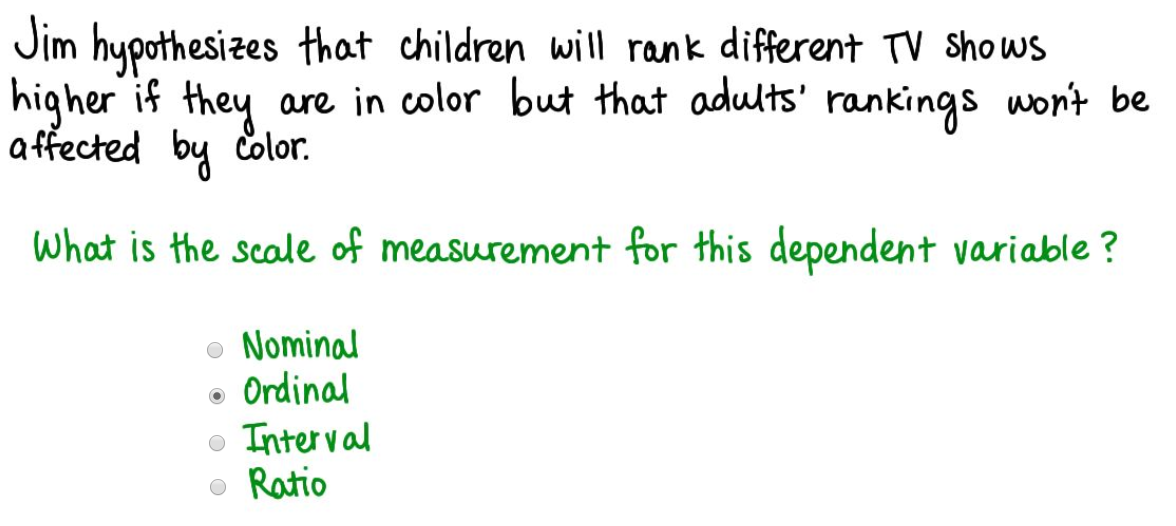 Jim hypothesizes that children will rank different TV shows
higher if they are in color but that adults' rankings won't be
affected by color.
What is the scale of measurement for this dependent variable?
Nominal
Ordinal
Interval
Ratio